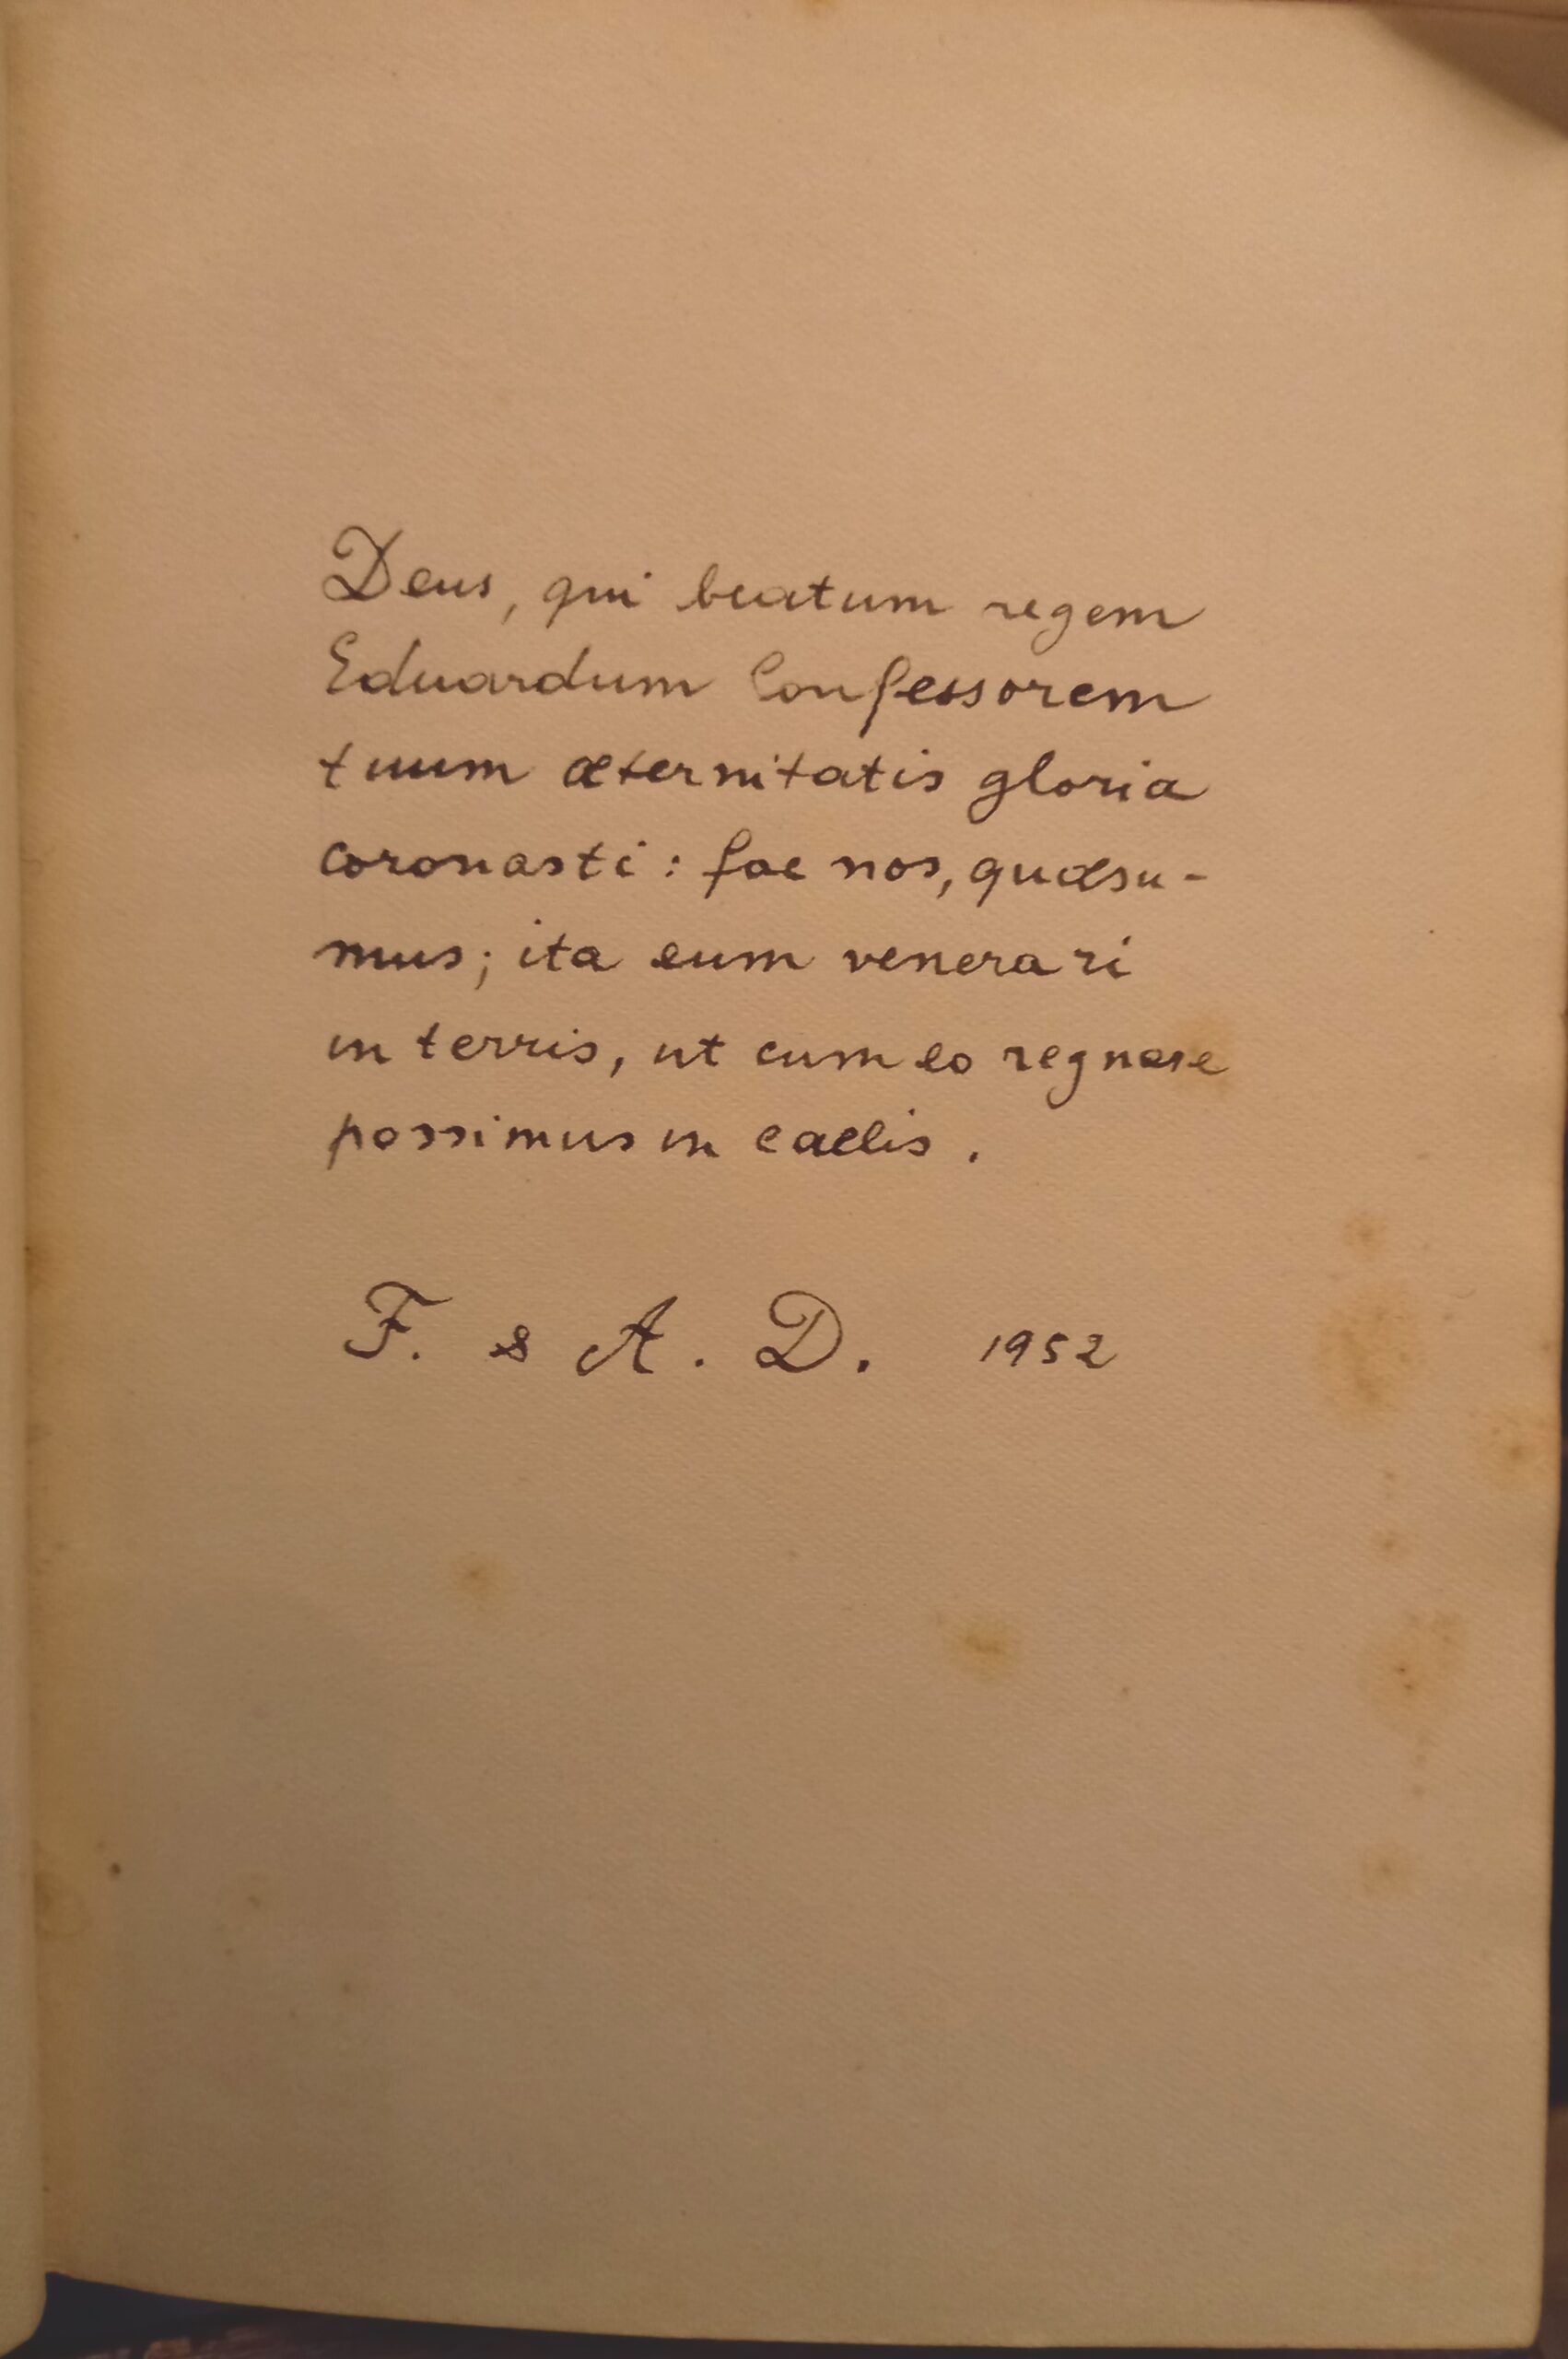 Deus, qui beatum regem
Eduardum Confessorem
tuum æternitatis gloria
coronasti : fac nos, quæsu-
mus; ita eum venerari
in terris, ut cum eo regnare
possimus in caelis .
F. & A. D. 1952